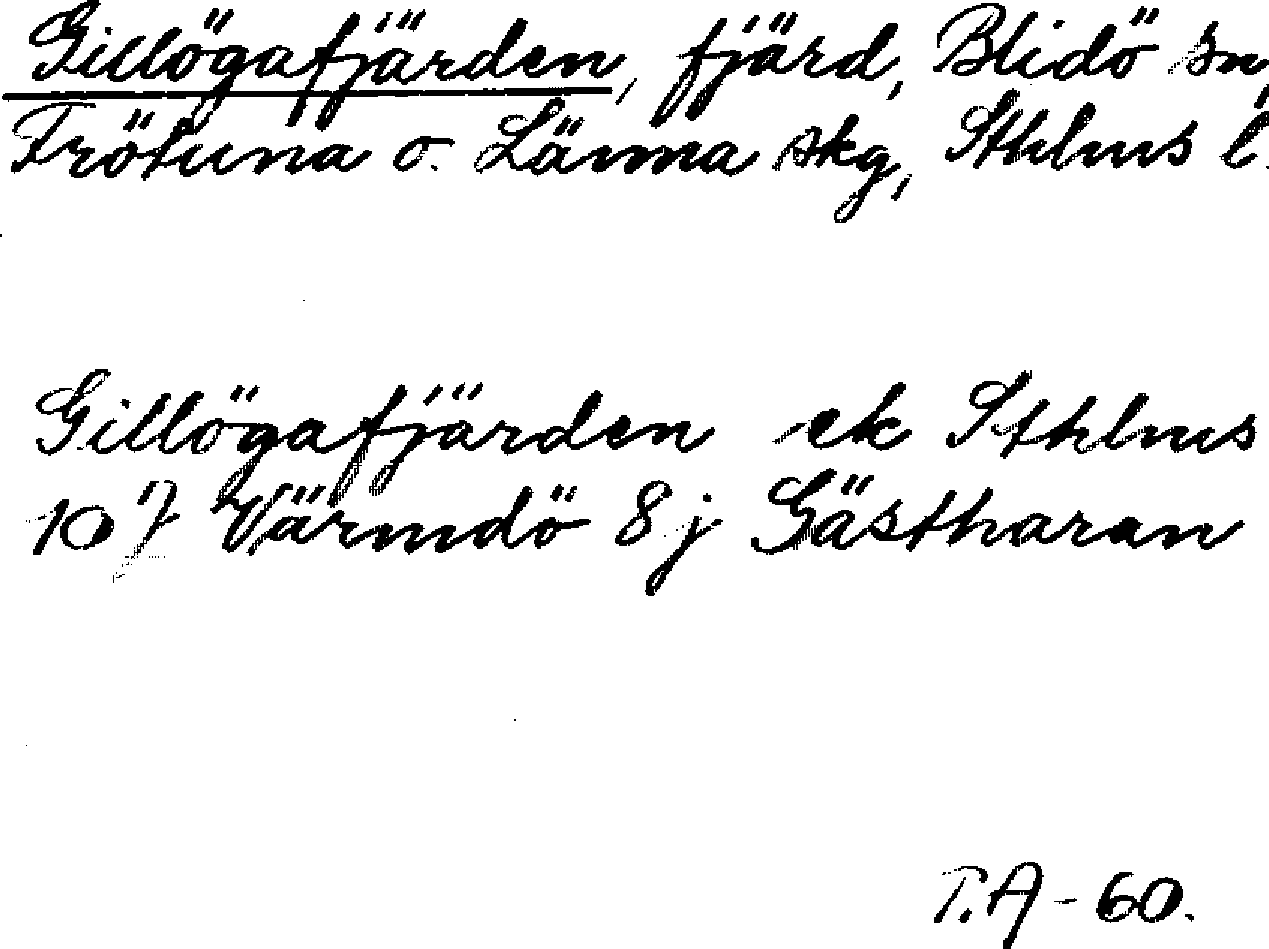 Gillögafjärden, fjärd, Blidö sn,
Frötuna o. Länna skg, Sthlms l.
Gillögafjärden ek Sthlms
10 7 Värmdö 8 j Gästharan
T.A-60.